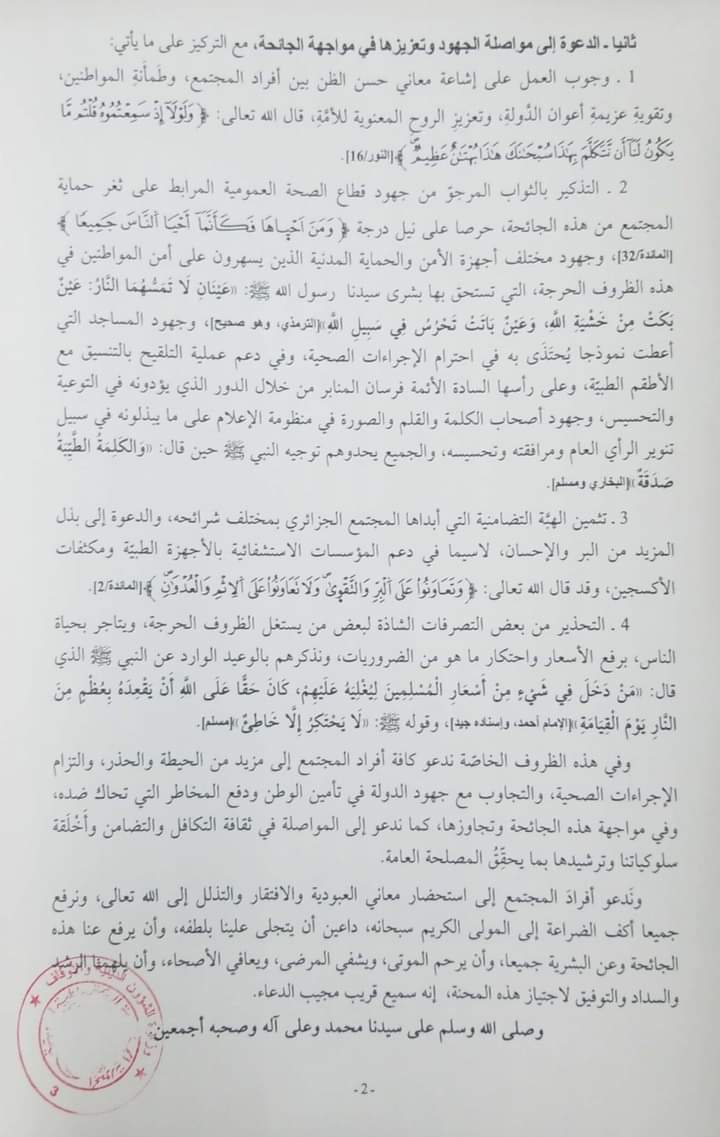 ثانيا ـ الدعوة إلى مواصلة الجهود وتعزيزها في مواجهة الجائحة، مع التركيز على ما يأتي:
1 . وجوب العمل على إشاعة معاني حسن الظن بين أفراد المجتمع، وطَمأَنةِ المواطنين،
وتقويةِ عزيمةِ أعوان الدَّولةِ، وتعزيزِ الروحِ المعنوية للأمَّةِ، قال الله تعالى: ﴿ وَلَوْلَآ إِذْ سَمِعْتُمُوهُ قُلْتُم مَّا
يَكُونُ لَنَآ أَن نَّتَكَلَّمَ بِهَٰذَا سُبْحَٰنَكَ هَٰذَا بُهْتَٰنٌ عَظِيمٌ ﴾.[النور/16].
2 . التذكير بالثواب المرجوّ من جهود قطاع الصحة العمومية المرابط على ثغر حماية
المجتمع من هذه الجائحة، حرصا على نيل درجة ﴿ وَمَنَ اَحْيٖاهَا فَكَأَنَّمَآ أَحْيَا اَلنَّاسَ جَمِيعًا ﴾
[المائدة/32]، وجهود مختلف أجهزة الأمن والحماية المدنية الذين يسهرون على أمن المواطنين في
هذه الظروف الحرجة، التي تستحق بها بشرى سيدنا رسول الله ﷺ: «عَيْنَانِ لَا تَمَسُّهُمَا النَّارُ: عَيْنٌ
بَكَتْ مِنْ خَشْيَةِ اللَّهِ، وَعَيْنٌ بَاتَتْ تَحْرُسُ فِي سَبِيلِ اللَّهِ»[الترمذي، وهو صحيح]، وجهود المساجد التي
أعطت نموذجا يُحتَذَى به في احترام الإجراءات الصحية، وفي دعم عملية التلقيح بالتنسيق مع
الأطقم الطبيّة، وعلى رأسها السادة الأئمة فرسان المنابر من خلال الدور الذي يؤدونه في التوعية
والتحسيس، وجهود أصحاب الكلمة والقلم والصورة في منظومة الإعلام على ما يبذلونه في سبيل
تنوير الرأي العام ومرافقته وتحسيسه، والجميع يحدوهم توجيه النبي ﷺ حين قال: «وَالكَلِمَةُ الطَّيِّبَةُ
صَدَقَةٌ»[البخاري ومسلم].
3 . تثمين الهبَّة التضامنية التي أبداها المجتمع الجزائري بمختلف شرائحه، والدعوة إلى بذل
المزيد من البر والإحسان، لاسيما في دعم المؤسسات الاستشفائية بالأجهزة الطبيّة ومكثفات
الأكسجين، وقد قال الله تعالى: ﴿ وَتَعَاوَنُوا۟ عَلَى اَلْبِرِّ وَالتَّقْوٖىٰ وَلَا تَعَاوَنُوا۟ عَلَى اَلِاثْمِ وَالْعُدْوَٰنِ ﴾.[المائدة/2].
4 . التحذير من بعض التصرفات الشاذة لبعض من يستغل الظروف الحرجة، ويتاجر بحياة
الناس، برفع الأسعار واحتكار ما هو من الضروريات، ونذكرهم بالوعيد الوارد عن النبي ﷺ الذي
قال: «مَنْ دَخَلَ فِي شَيْءٍ مِنْ أَسْعَارِ الْمُسْلِمِينَ لِيُغْلِيَهُ عَلَيْهِمْ، كَانَ حَقًّا عَلَى اللَّهِ أَنْ يَقْعِدَهُ بِعُظْمٍ مِنَ
النَّارِ يَوْمَ الْقِيَامَةِ»[الإمام أحمد، وإسناده جيد]، وقوله ﷺ: «لَا يَحْتَكِرُ إِلَّا خَاطِئٌ»[مسلم].
وفي هذه الظروف الخاصّة ندعو كافة أفراد المجتمع إلى مزيد من الحيطة والحذر، والتزام
الإجراءات الصحية، والتجاوب مع جهود الدولة في تأمين الوطن ودفع المخاطر التي تحاك ضده،
وفي مواجهة هذه الجائحة وتجاوزها، كما ندعو إلى المواصلة في ثقافة التكافل والتضامن وأَخْلَقة
سلوكياتنا وترشيدها بما يحقِّقُ المصلحة العامة.
ونَدعو أفرادَ المجتمع إلى استحضار معاني العبودية والافتقار والتذلل إلى الله تعالى، ونرفع
جميعا أكف الضراعة إلى المولى الكريم سبحانه، داعين أن يتجلى علينا بلطفه، وأن يرفع عنا هذه
الجائحة وعن البشرية جميعا، وأن يرحم الموتى، ويشفي المرضى، ويعافي الأصحاء، وأن يلهمنا الرشد
والسداد والتوفيق لاجتياز هذه المحنة، إنه سميع قريب مجيب الدعاء.
وصلى الله وسلم على سيدنا محمد وعلى آله وصحبه أجمعين
وزارة الشؤون الدينية والأوقاف
3
- 2 -